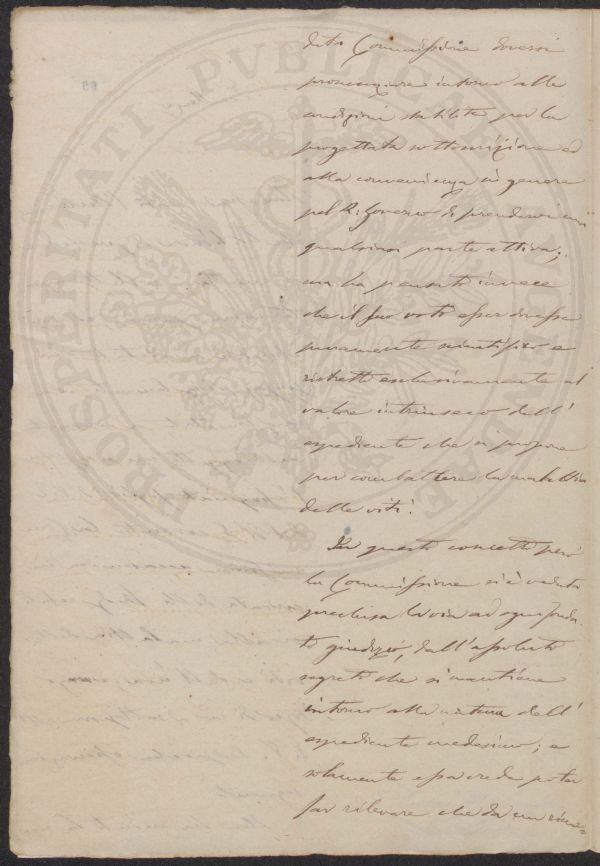 PROSPERITATI PUBLICAE AUGENDAE
detta Commissione doversi
pronunziare intorno alle
condizioni stabilite per la
progettata sottoscrizione ed
alla convenienza in genere
pel R. Governo di prendervi
qualsiasi parte attiva;
ma ha pensato invece
che il suo voto esser dovesse
puramente scientifico e
ristretto esclusivamente al
valore intrinseco dell'
espediente che si propone
per combattere la malattia
delle viti.
In questo concetto però
la Commissione si è veduta
preclusa la via ad ogni fonda
to giudizio, dall'assoluto
segreto che si mantiene
intorno alla natura dell'
espediente medesimo; e
solamente essa crede poter
far rilevare che da un